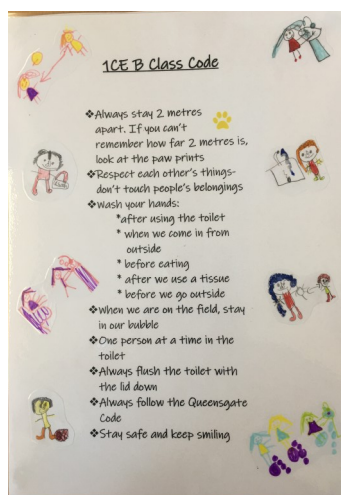 1CE B Class Code
❖Always stay 2 metres
apart. If you can't
remember how far 2 metres is,
look at the paw prints
❖Respect each other's things-
don't touch people's belongings
❖Wash your hands:
*after using the toilet
* when we come in from
outside
* before eating
* after we use a tissue
* before we go outside
❖When we are on the field, stay
in our bubble
❖One person at a time in the
toilet
❖Always flush the toilet with
the lid down
❖Always follow the Queensgate
Code
❖Stay safe and keep smiling